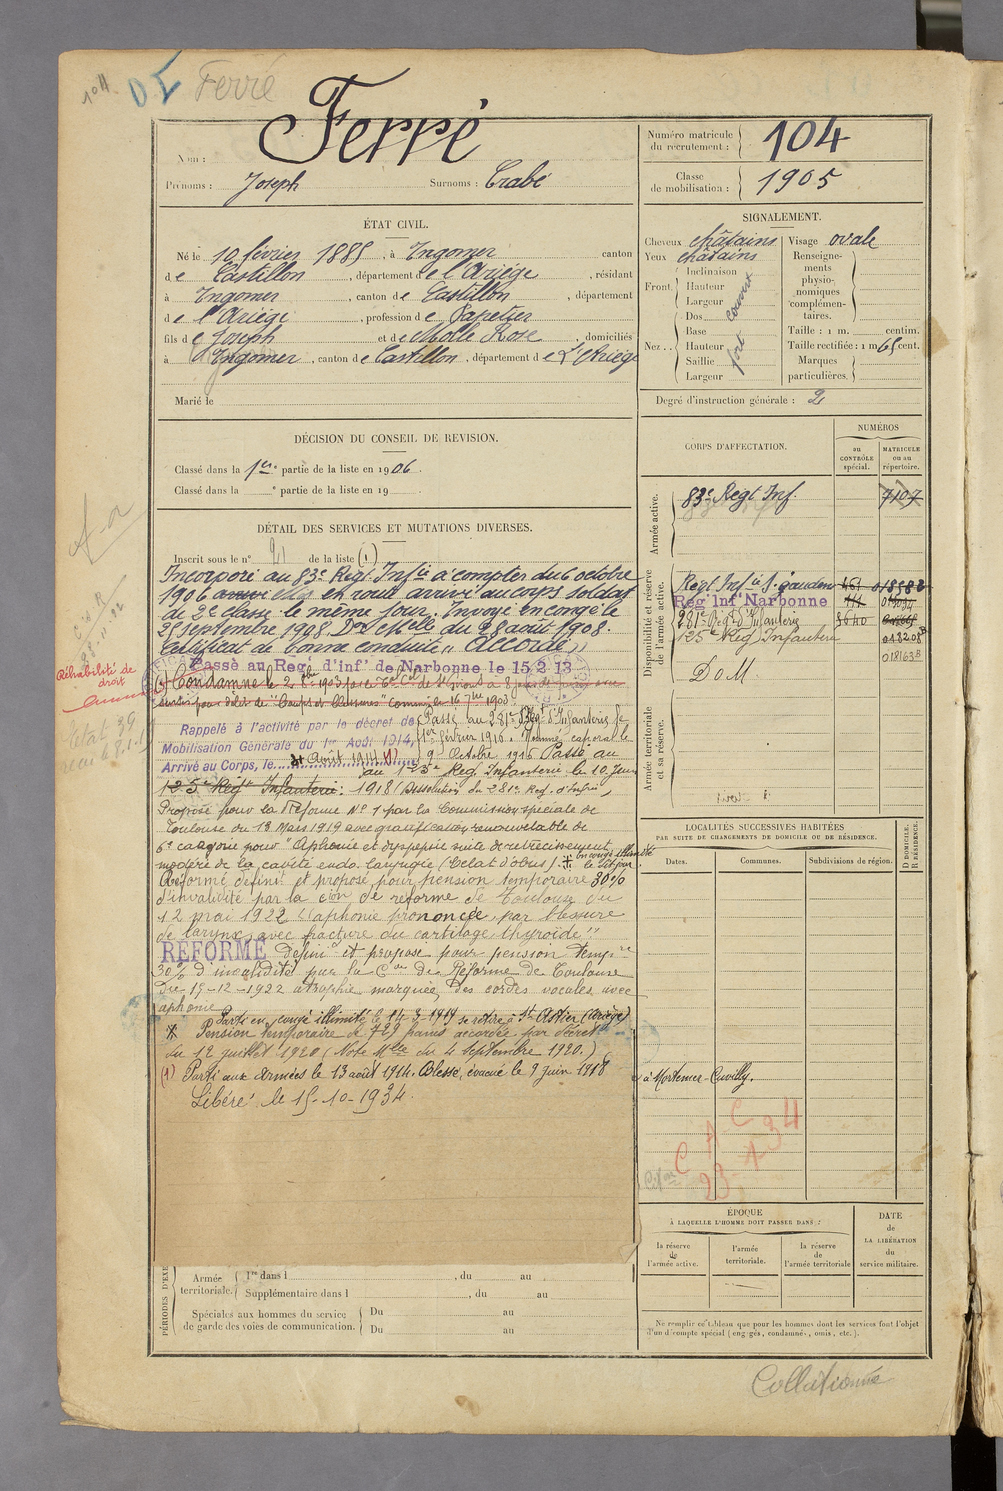 104 Ferré
Ferré
Nom :
Prénoms : Joseph Surnoms : Crabé
Numéro matricule du recrutement : 104
Classe de mobilisation : 1905
ÉTAT CIVIL.
Né le 10 février 1885, à Ingomer canton
de Castillon, département de l'Ariège, résidant
à Ingomer, canton de Castillon, département
de l'Ariège, profession de Papetier
fils de Joseph et de Molle Rose, domiciliés
à Ingomer, canton de Castillon, département de L'Ariège
Marié le
SIGNALEMENT.
Cheveux châtains
Yeux châtains
Front. Inclinaison
Hauteur
Largeur
Nez.. Dos
Base
Hauteur
Saillie
Largeur
fort
Visage ovale
Renseigne-
ments
physio-
nomiques
complémen-
taires.
Taille : 1 m. centim.
Taille rectifiée : 1 m 65 cent.
Marques
particulières.
Degré d'instruction générale : 2
DÉCISION DU CONSEIL DE REVISION.
Classé dans la 1re partie de la liste en 1906.
Classé dans la e partie de la liste en 19
DÉTAIL DES SERVICES ET MUTATIONS DIVERSES.
Inscrit sous le n° 21 de la liste (1)
Incorporé au 83e Regt Infie à compter du 6 octobre
1906 en route arrivé au corps soldat
de 2e classe le même jour. Envoyé en congé le
25 septembre 1908. Don Melle du 28 août 1908.
Certificat de bonne conduite "Accordé"
Passé au Reg. d'inf' de Narbonne le 15 2 13
Condamné le 2 8bre 1903 par le Cel de St Girons à 8 jours de prison avec
sursis pour délit de "Coups et blessures" commis le 16 7bre 1903
Réhabilité de
droit
Rappelé à l'activité par le décret de
Mobilisation Générale du 1er Août 1914,
Arrivé au Corps, le Août 1914 (1)
Passé au 281e Regt d'Infanterie le
1er février 1916. Nommé caporal le
9 Octobre 1916 Passé au
au 125e Reg Infanterie le 10 Juin
125e Regt Infanterie: 1918 (Dissolution du 281e Reg. d'Infrie)
Proposé pour la Réforme N° 1 par la Commission spéciale de
Toulouse du 13 Mars 1919 avec gratification renouvelable de
6e catégorie pour "Aphonie et dyspepsie suite de rétrécissement
modéré de la cavité endo laryngée (Eclat d'obus). * en congé illimité
Réformé définit et proposé pour pension temporaire 30%
d'invalidité par la cion de réforme de Toulouse du
12 mai 1922 "aphonie prononcée, par blessure
de larynx avec fracture du cartilage thyroïde"
RÉFORMÉ définif et proposé pour pension tempre
30% d'invalidité par la Con de Réforme de Toulouse
Du 15-12-1922 atrophie marquée des cordes vocales avec
aphonie
Parti en congé illimité le 14-3-1919 se retire à St (Ariège)
* Pension temporaire de 729 francs accordée par Décret
du 12 juillet 1920 (Note Melle du 4 Septembre 1920.)
(1) Parti aux Armées le 13 août 1914. Blessé, évacué le 9 Juin 1918 à Mortemer-Cuvilly.
Libéré le 15-10-1934.
CORPS D'AFFECTATION.
NUMÉROS
au CONTRÔLE spécial.
MATRICULE ou au répertoire.
Armée active.
83e Regt Inf. 7107
Disponibilité et réserve de l'armée active.
Regt Infie St Gaudens 461
Reg' Inf' Narbonne
281e Regt d'Infanterie 3640
125e Reg Infanterie 013208
018163
D d M
Armée territoriale et sa réserve.
LOCALITÉS SUCCESSIVES HABITÉES
PAR SUITE DE CHANGEMENTS DE DOMICILE OU DE RÉSIDENCE.
Dates. Communes. Subdivisions de région.
D DOMICILE. R RÉSIDENCE.
C A C
23-1-34
ÉPOQUE
À LAQUELLE L'HOMME DOIT PASSER DANS :
la réserve de l'armée active.
l'armée territoriale.
la réserve de l'armée territoriale
DATE de LA LIBÉRATION du service militaire.
Ne remplir ce tableau que pour les hommes dont les services font l'objet
d'un décompte spécial (engagés, condamnés, omis, etc.).
PÉRIODES D'EXE
Armée territoriale. 1re dans l , du au
Supplémentaire dans l , du au
Spéciales aux hommes du service
de garde des voies de communication.
Du au
Du au
Collationné